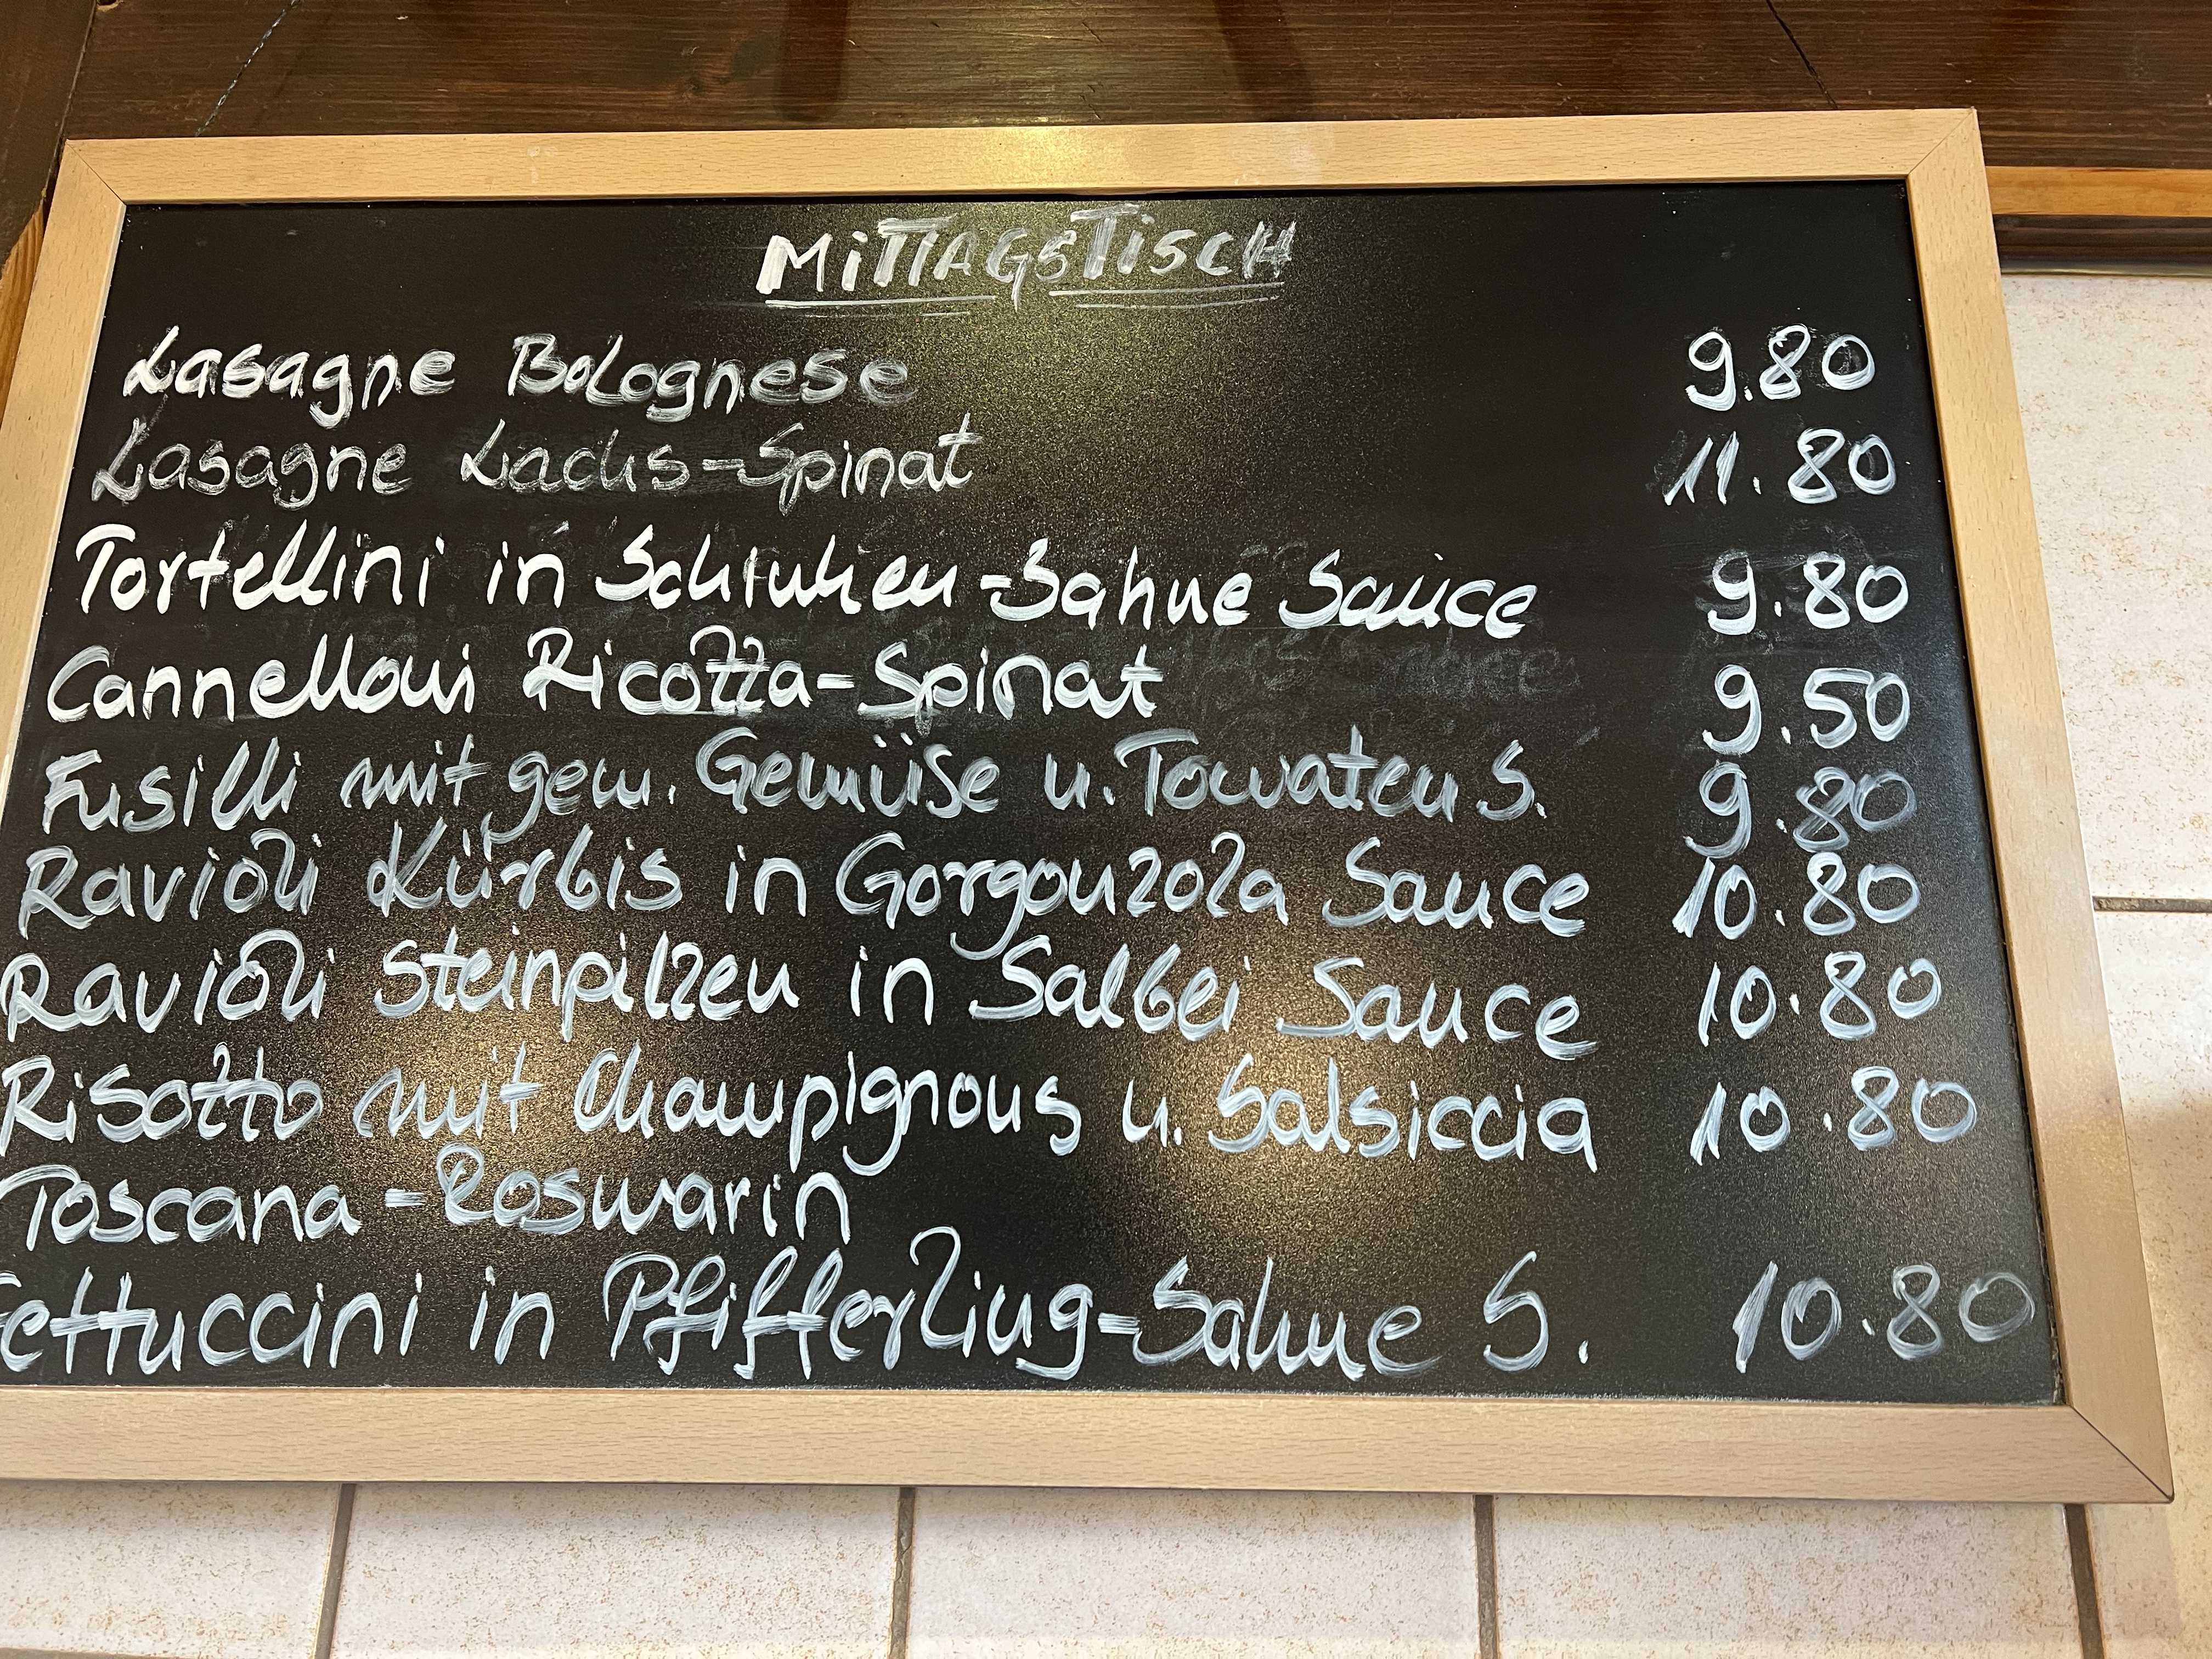 MiTTAGSTiSCH
Lasagne Bolognese 9.80
Lasagne Lachs-Spinat 11.80
Tortellini in Schinken-Sahne Sauce 9.80
Cannelloni Ricotta-Spinat 9.50
Fusilli mit gem. Gemüse u. Tomaten S. 9.80
Ravioli Kürbis in Gorgonzola Sauce 10.80
Ravioli Steinpilzen in Salbei Sauce 10.80
Risotto mit Champignons u. Salsiccia 10.80
Toscana-Rosmarin
Fettuccini in Pfifferling-Sahne S. 10.80